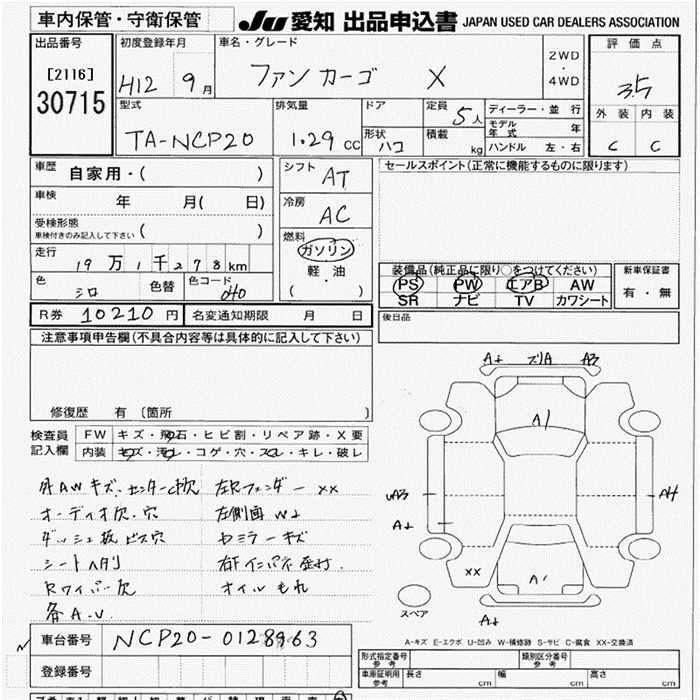 車内保管・守衛保管
JU 愛知 出品申込書 JAPAN USED CAR DEALERS ASSOCIATION
出品番号
[2116]
30715
初度登録年月
H12 9月
車名・グレード
ファンカーゴ X
2WD
・
4WD
評価点
3.5
外装 内装
C C
型式
TA-NCP20
排気量
1.29 CC
ドア
形状
ハコ
定員
5人
積載
kg
ディーラー・並行
モデル年式 年
ハンドル 左・右
車歴
自家用・( )
車検
年 月( 日)
受検形態
車検付きのみ記入して下さい ( )
走行
19万1千278km
色
シロ
色替
色コード
040
シフト
AT
冷房
AC
燃料
ガソリン
軽・油
( )
セールスポイント(正常に機能するものに限ります)
装備品(純正品に限り○をつけてください)
PS PW エアB AW
SR ナビ TV カワシート
新車保証書
有・無
R券 10210円
名変通知期限 月 日
後日品
注意事項申告欄(不具合内容等は具体的に記入して下さい)
修復歴 有 〔箇所 〕
検査員
記入欄
FW キズ・飛石・ヒビ割・リペア跡・X要
内装 キズ・汚レ・コゲ・穴・スレ・キレ・破レ
外AWキズ・センターC欠
オーディオ欠・穴
ダッシュ板ビス穴
Rワイパー欠
各A.U.
左Rフェンダー XX
左側面
ミラーキズ
オイルもれ
A+ ズリA A3
A1
UA3
A+
A4
XX
A'
A+
スペア
A-キズ E-エクボ U-凹み W-補修跡 S-サビ C-腐食 XX-交換済
車台番号 NCP20-0128963
登録番号
形式指定番号
参考
類別区分番号
参考
車庫証明用
参考
長さ cm 幅 cm 高さ cm